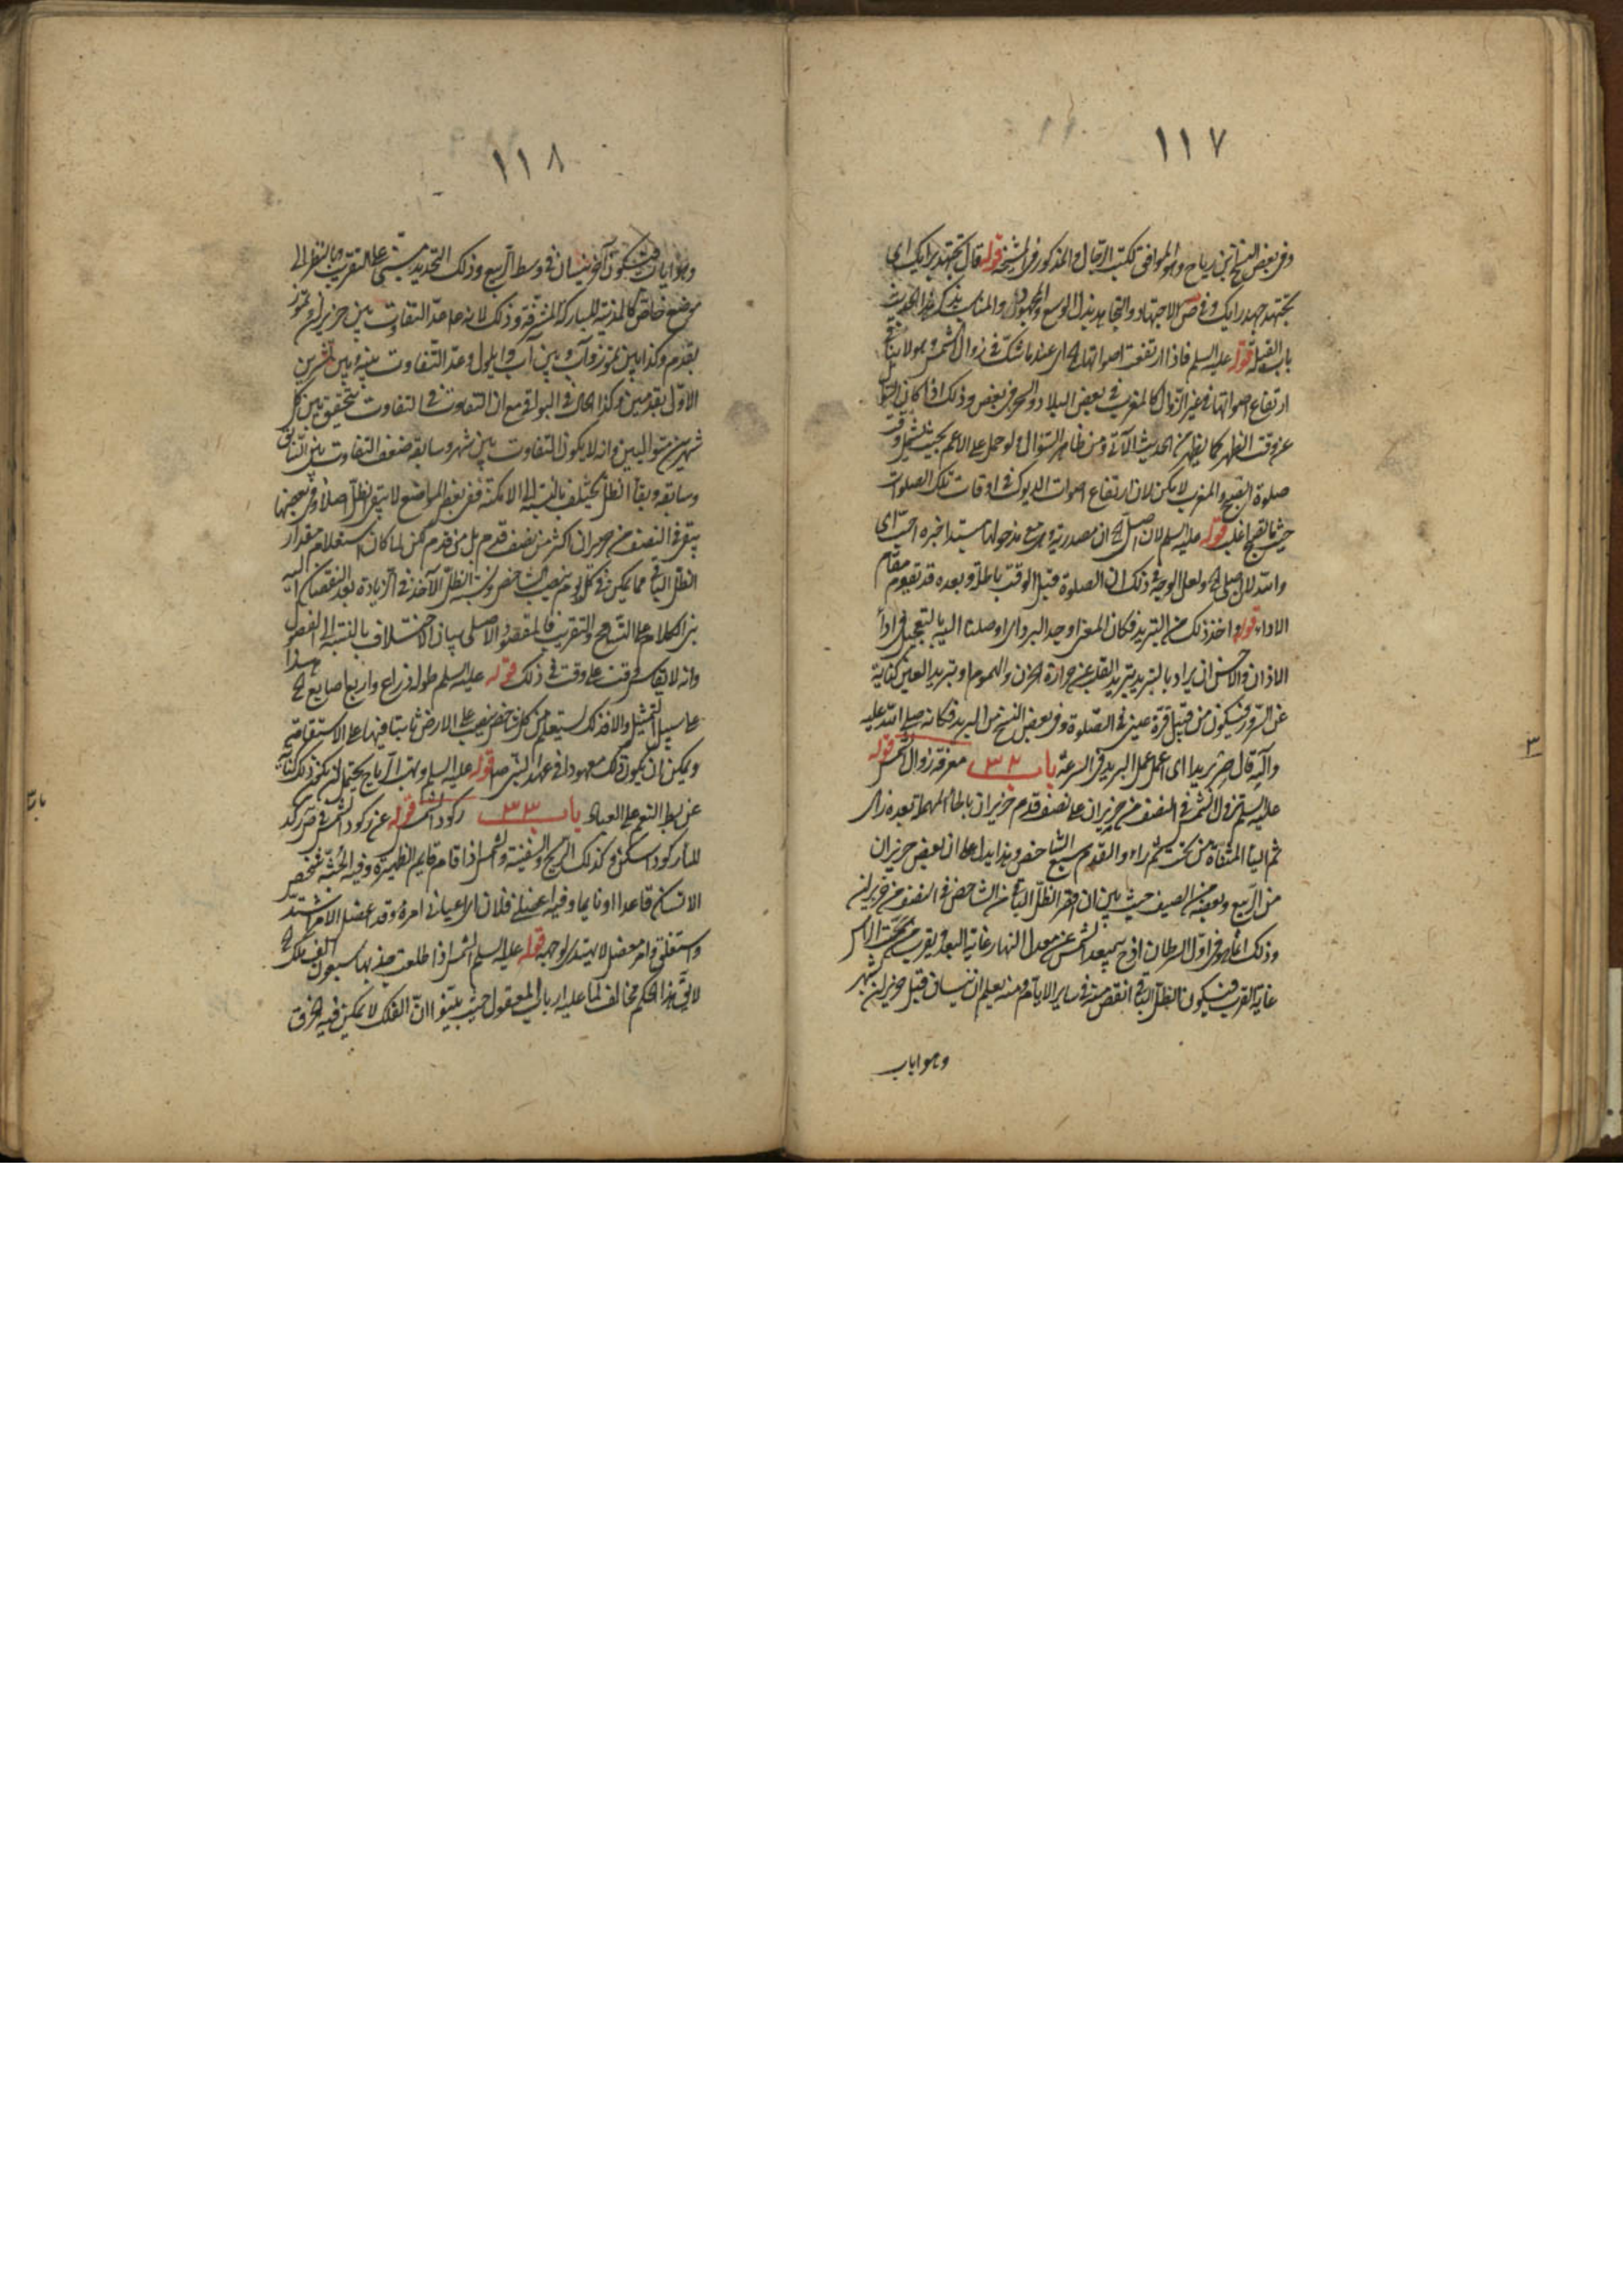 ١١٧
وفي بعض النسخ ابن رياح وهو الموافق لكتب الرجال والمذكور في المشيخة قوله قال تجتهد برايك اي
تجتهد جهد رايك وفي ص الاجتهاد والتجاهد بذل الوسع والمجهود والمناسب بذكر هذا الحديث
باب القبلة قوله عليه السلم فاذا ارتفعت اصواتها الخ اي عند ما شكّ في زوال الشمس وهو لا ينافي
ارتفاع اصواتها في غير الزوال كالمغرب في بعض البلاد والسحر في بعض وذلك اذا كان السؤال
عن وقت الظهر كما يظهر من الحديث الآتي ومن ظاهر السؤال ولو حمل على الاعم بحيث يشمل وقت
صلوة الفجر والمغرب لا يمكن لان ارتفاع اصوات الديوك في اوقات تلك الصلوات
قوله عليه السلم لان اصلى الخ ان مصدرية وهي مع مدخولها مبتدا خبره احبّ اي
والله لان اصلي الخ ولعل الوجه في ذلك ان الصلوة قبل الوقت باطلة وبعده قد تقوم مقام
الاداء قوله واخذ ذلك من التبريد فكان المعنى اوجد البرد اي اوصلنا اليه بالتعجيل في اداء
الاذان والاحسن ان يراد بالتبريد تبريد القلب عن حرارة الحزن والهموم او تبريد العين كناية
عن السرور فيكون من قبيل قرة عيني في الصلوة وفي بعض النسخ من البريد فكانه صلى الله عليه
وآله قال صر بريدا اى اعمل عمل البريد في السرعة باب ٣٢ معرفة زوال الشمس قوله
عليه السلم تزول الشمس في النصف من حزيران على نصف قدم حزيران بالحاء المهملة بعده زاى
ثم الياء المثناة من تحت ثم راء والقدم سبع الشاخص وهذا يدل على ان بعض حزيران
من الربيع وبعضه من الصيف حيث بين ان اقصر الظل الباقي من الشاخص في النصف من حزيران
وذلك انما هو في اول السرطان اذ ح يبعد الشمس عن معدل النهار غاية البعد ويقرب من سمت الراس
غاية القرب فيكون الظل الباقي انقص منه في ساير الايام ومنه يعلم ان نيسان قبل حزيران بشهر
وهو اياب
٣
١١٨
وهو ايار فيكون آخر نيسان في وسط الربيع وذلك التحديد مبني على التقريب وبالنظر الى
موضع خاص كالمدينة المباركة المشرفة وذلك لانه ع عدّ التفاوت بين حزيران وتموز
بقدم وكذا بين تموز وآب وبين آب وايلول وعدّ التفاوت بينه وبين تشرين
الاول بقدمين وكذا الحال في البواقي مع ان التفاوت في التفاوت يتحقق بين كل
شهرين متواليين وانه لا يكون التفاوت بين شهر وسابقه ضعف التفاوت بين السابق
وسابقه وبقاء الظل يختلف بالنسبة الى الامكنة ففي بعض المواضع لا يبقى الظل اصلا وفي بعضها
يبقى في النصف من حزيران اكثر من نصف قدم بل من قدم لكن لما كان استعلام مقدار
الظل الباقي مما يمكن في كل يوم بنصب الشاخص ونسبة الظل الآخذ في الزيادة بعد النقصان اليه
بنى الكلام على التسامح والتقريب فالمقصود الاصلي بيان الاختلاف بالنسبة الى الفصول
وانه لا يقاس وقت على وقت في ذلك قوله عليه السلم طوله ذراع واربع اصابع الخ هذا
على سبيل التمثيل والا فذلك يستعلم من كل شاخص ينصب على الارض ثابتا فيها على الاستقامة
ويمكن ان يكون ذلك معهودا في عهد النبي ص قوله عليه السلم وتهب الرياح يحتمل ان يكون ذلك كناية
عن بسط النعم على العباد باب ٣٣ ركود الشمس قوله عن ركود الشمس في ص ركد
الماء ركودا سكن وكذلك الريح والسفينة والشمس اذا قام قايم الظهيرة وفيه الجثة شخص
الانسان قاعدا او نايما وفيه اعضلني فلان اى اعياني امره وقد اعضل الامر اشتد
واستغلق وامر معضل لا يهتدى لوجهه قوله عليه السلم ان الشمس اذا طلعت جذبها سبعون الف ملك الخ
لا يق هذا الحكم مخالف لما عليه ارباب المعقول حيث بينوا ان الفلك لا يمكن فيه الخرق